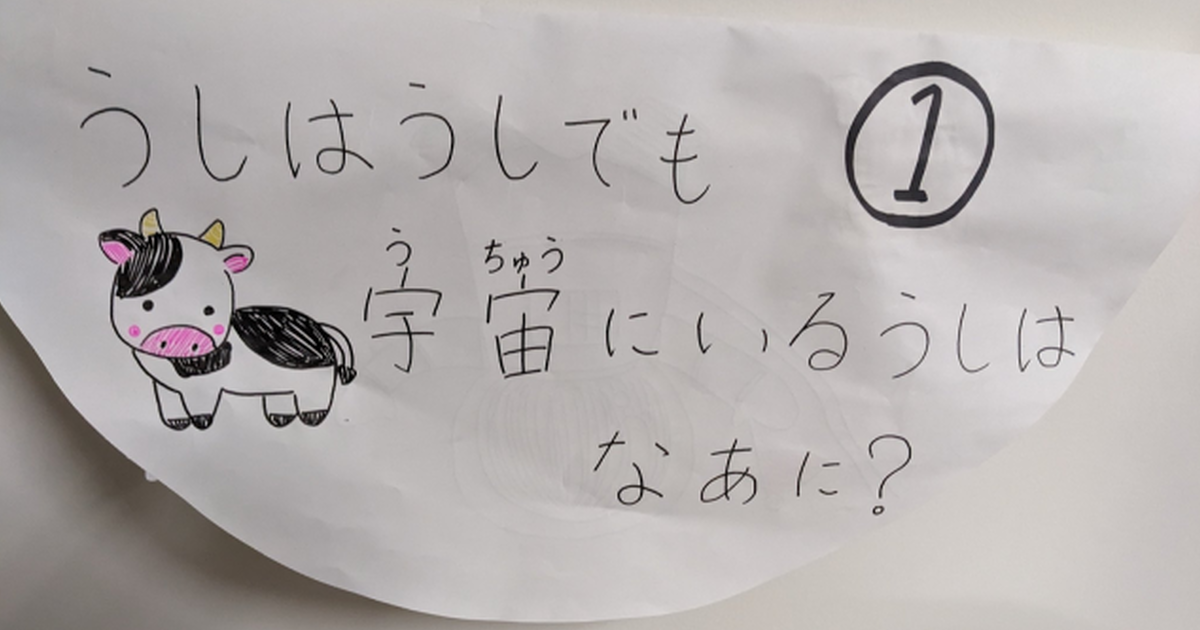 うしはうしでも
①
宇宙にいるうしは
うちゅう
なあに?